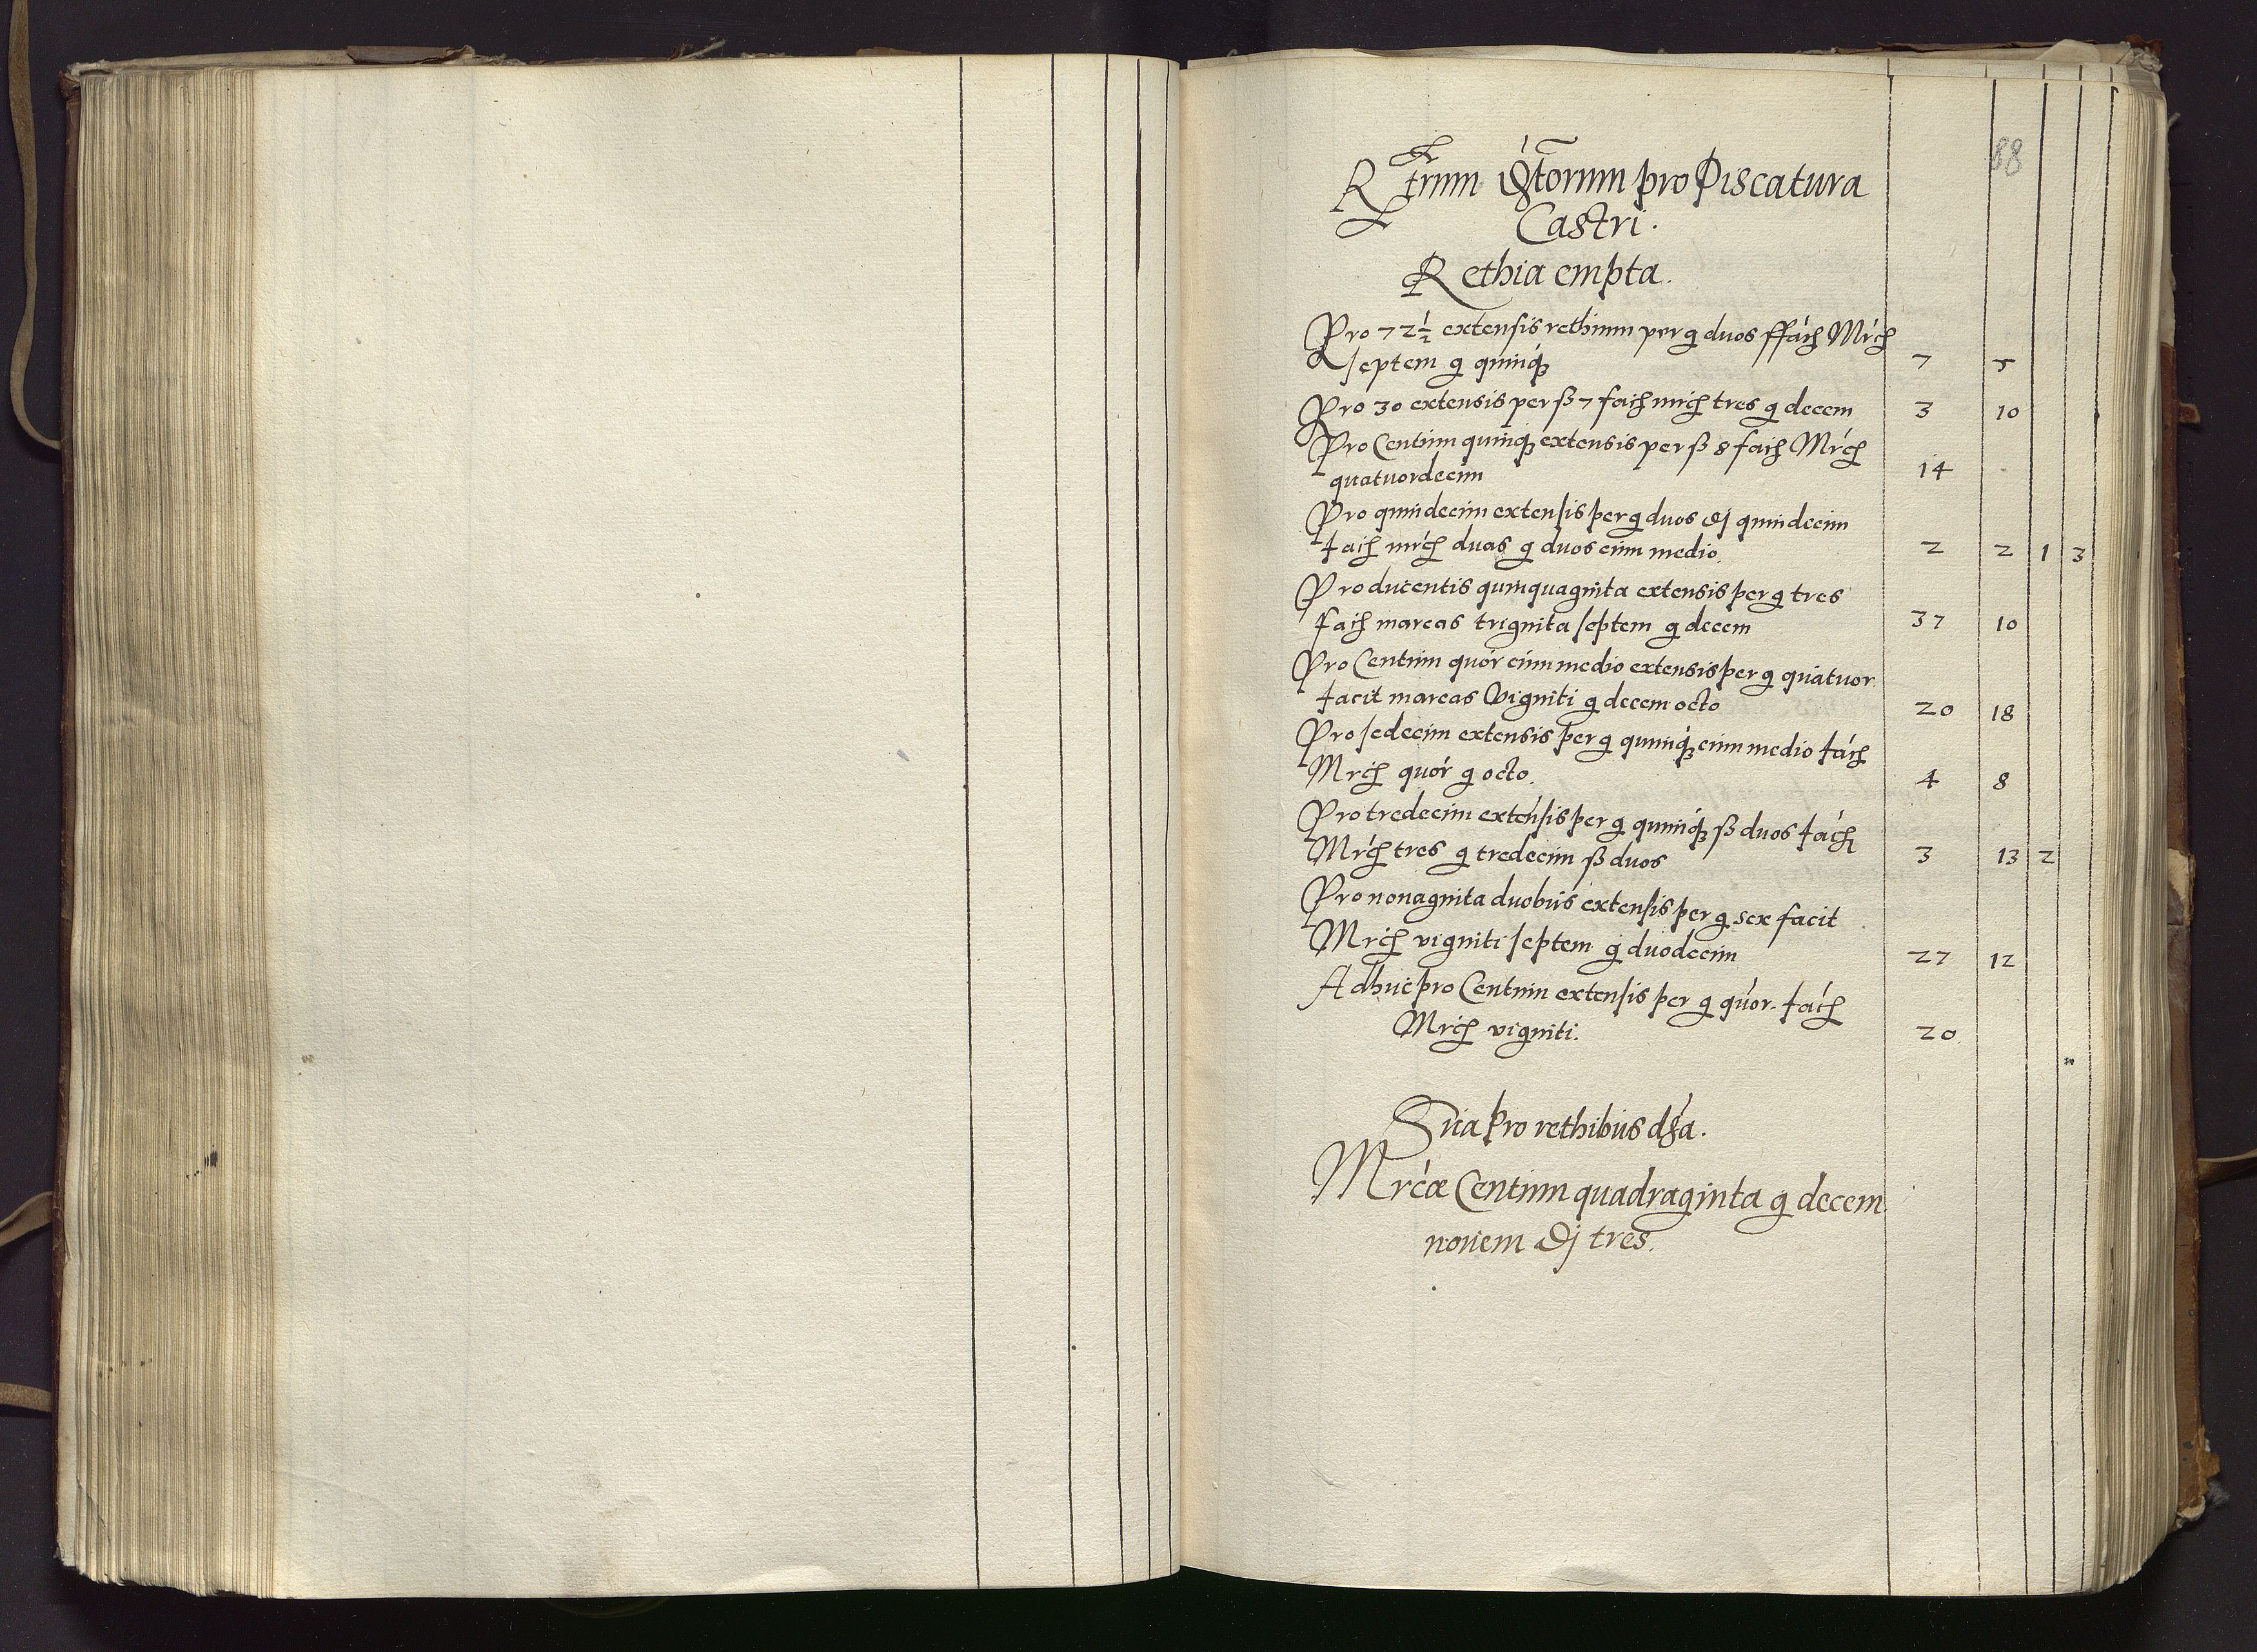 88
Rtrum Distorum pro Piscatura
Castri.
Rethia empta.
Pro 72 1/2 extensis rethium per g duos ffach Mrch
septem g quinq; 7 5
Pro 30 extensis per ß 7 fach mrch tres g decem 3 10
Pro Centum quinq; extensis per ß 8 fach Mrch
quatuordecim 14 .
Pro quindecim extensis per g duos dj quindecim
fach mrch duas g duos cum medio. 2 2 1 3
Pro ducentis quinquaginta extensis per g tres
fach marcas triginta septem g decem 37 10
Pro Centum quór cum medio extensis per g quatuor
facit marcas Viginti g decem octo 20 18
Pro sedecim extensis per g quinq; cum medio fach
Mrch quór g octo. 4 8
Pro tredecim extensis per g quinq; ß duos fach
Mrch tres g tredecim ß duos 3 13 2
Pro nonaginta duobus extensis per g sex facit
Mrch viginti septem g duodecim 27 12
Adhuc pro Centum extensis per g quór. fach
Mrch viginti. 20
Sūa pro rethibus dſſa.
Mrcæ Centum quadraginta g decem
novem dj tres.